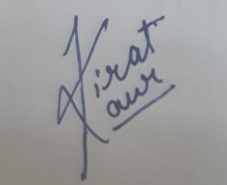 Kirat
aur